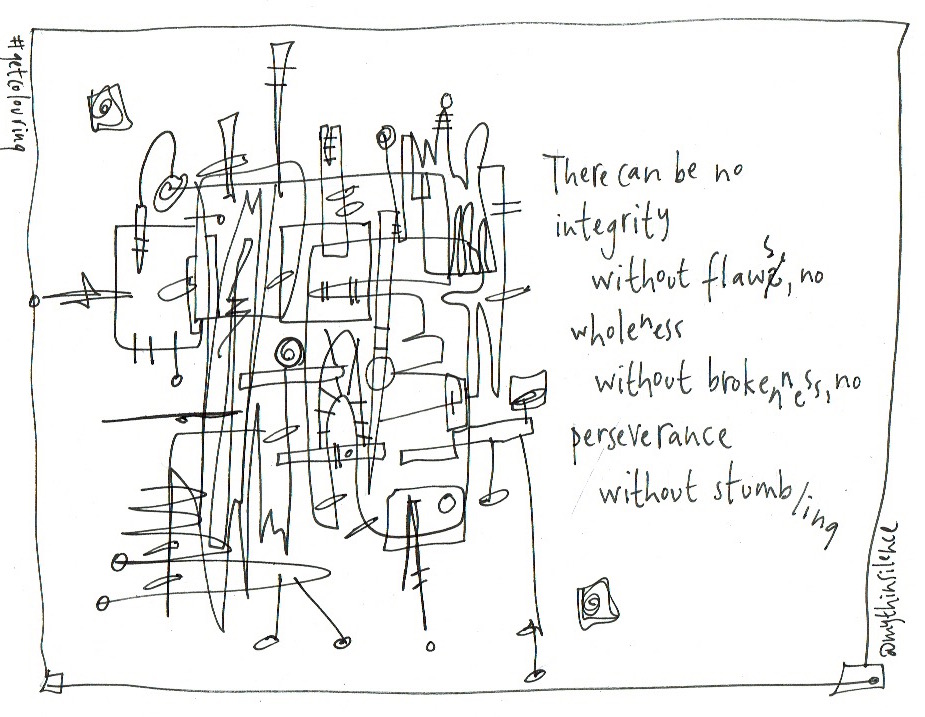 #getcolouring
There can be no
integrity
without flaws, no
wholeness
without brokenness, no
perseverance
without stumbling
@mythinsilence